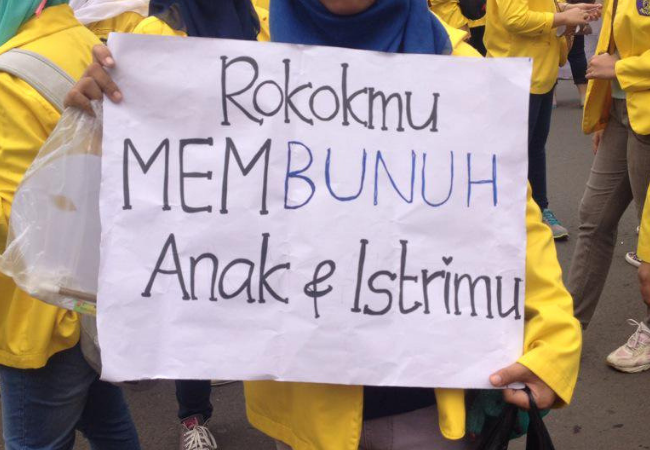 Rokokmu
MEMBUNUH
Anak & Istrimu